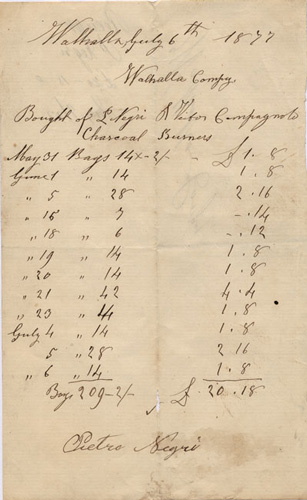 Walhalla July 6th 1877
Walhalla Compy
Bought of L. Negri & Vitor Campagnolo
Charcoal Burners
May 31 Bags 14 - 2/- £ 1 . 8
June 1 " 14 1 . 8
" 5 " 28 2 . 16
" 16 " 7 - . 14
" 18 " 6 - . 12
" 19 " 14 1 . 8
" 20 " 14 1 . 8
" 21 " 42 4 . 4
" 23 " 14 1 . 8
July 4 " 14 1 . 8
5 " 28 2 16
" 6 " 14 1 . 8
Bags 209 - 2/- £ 20 . 18
Pietro Negri